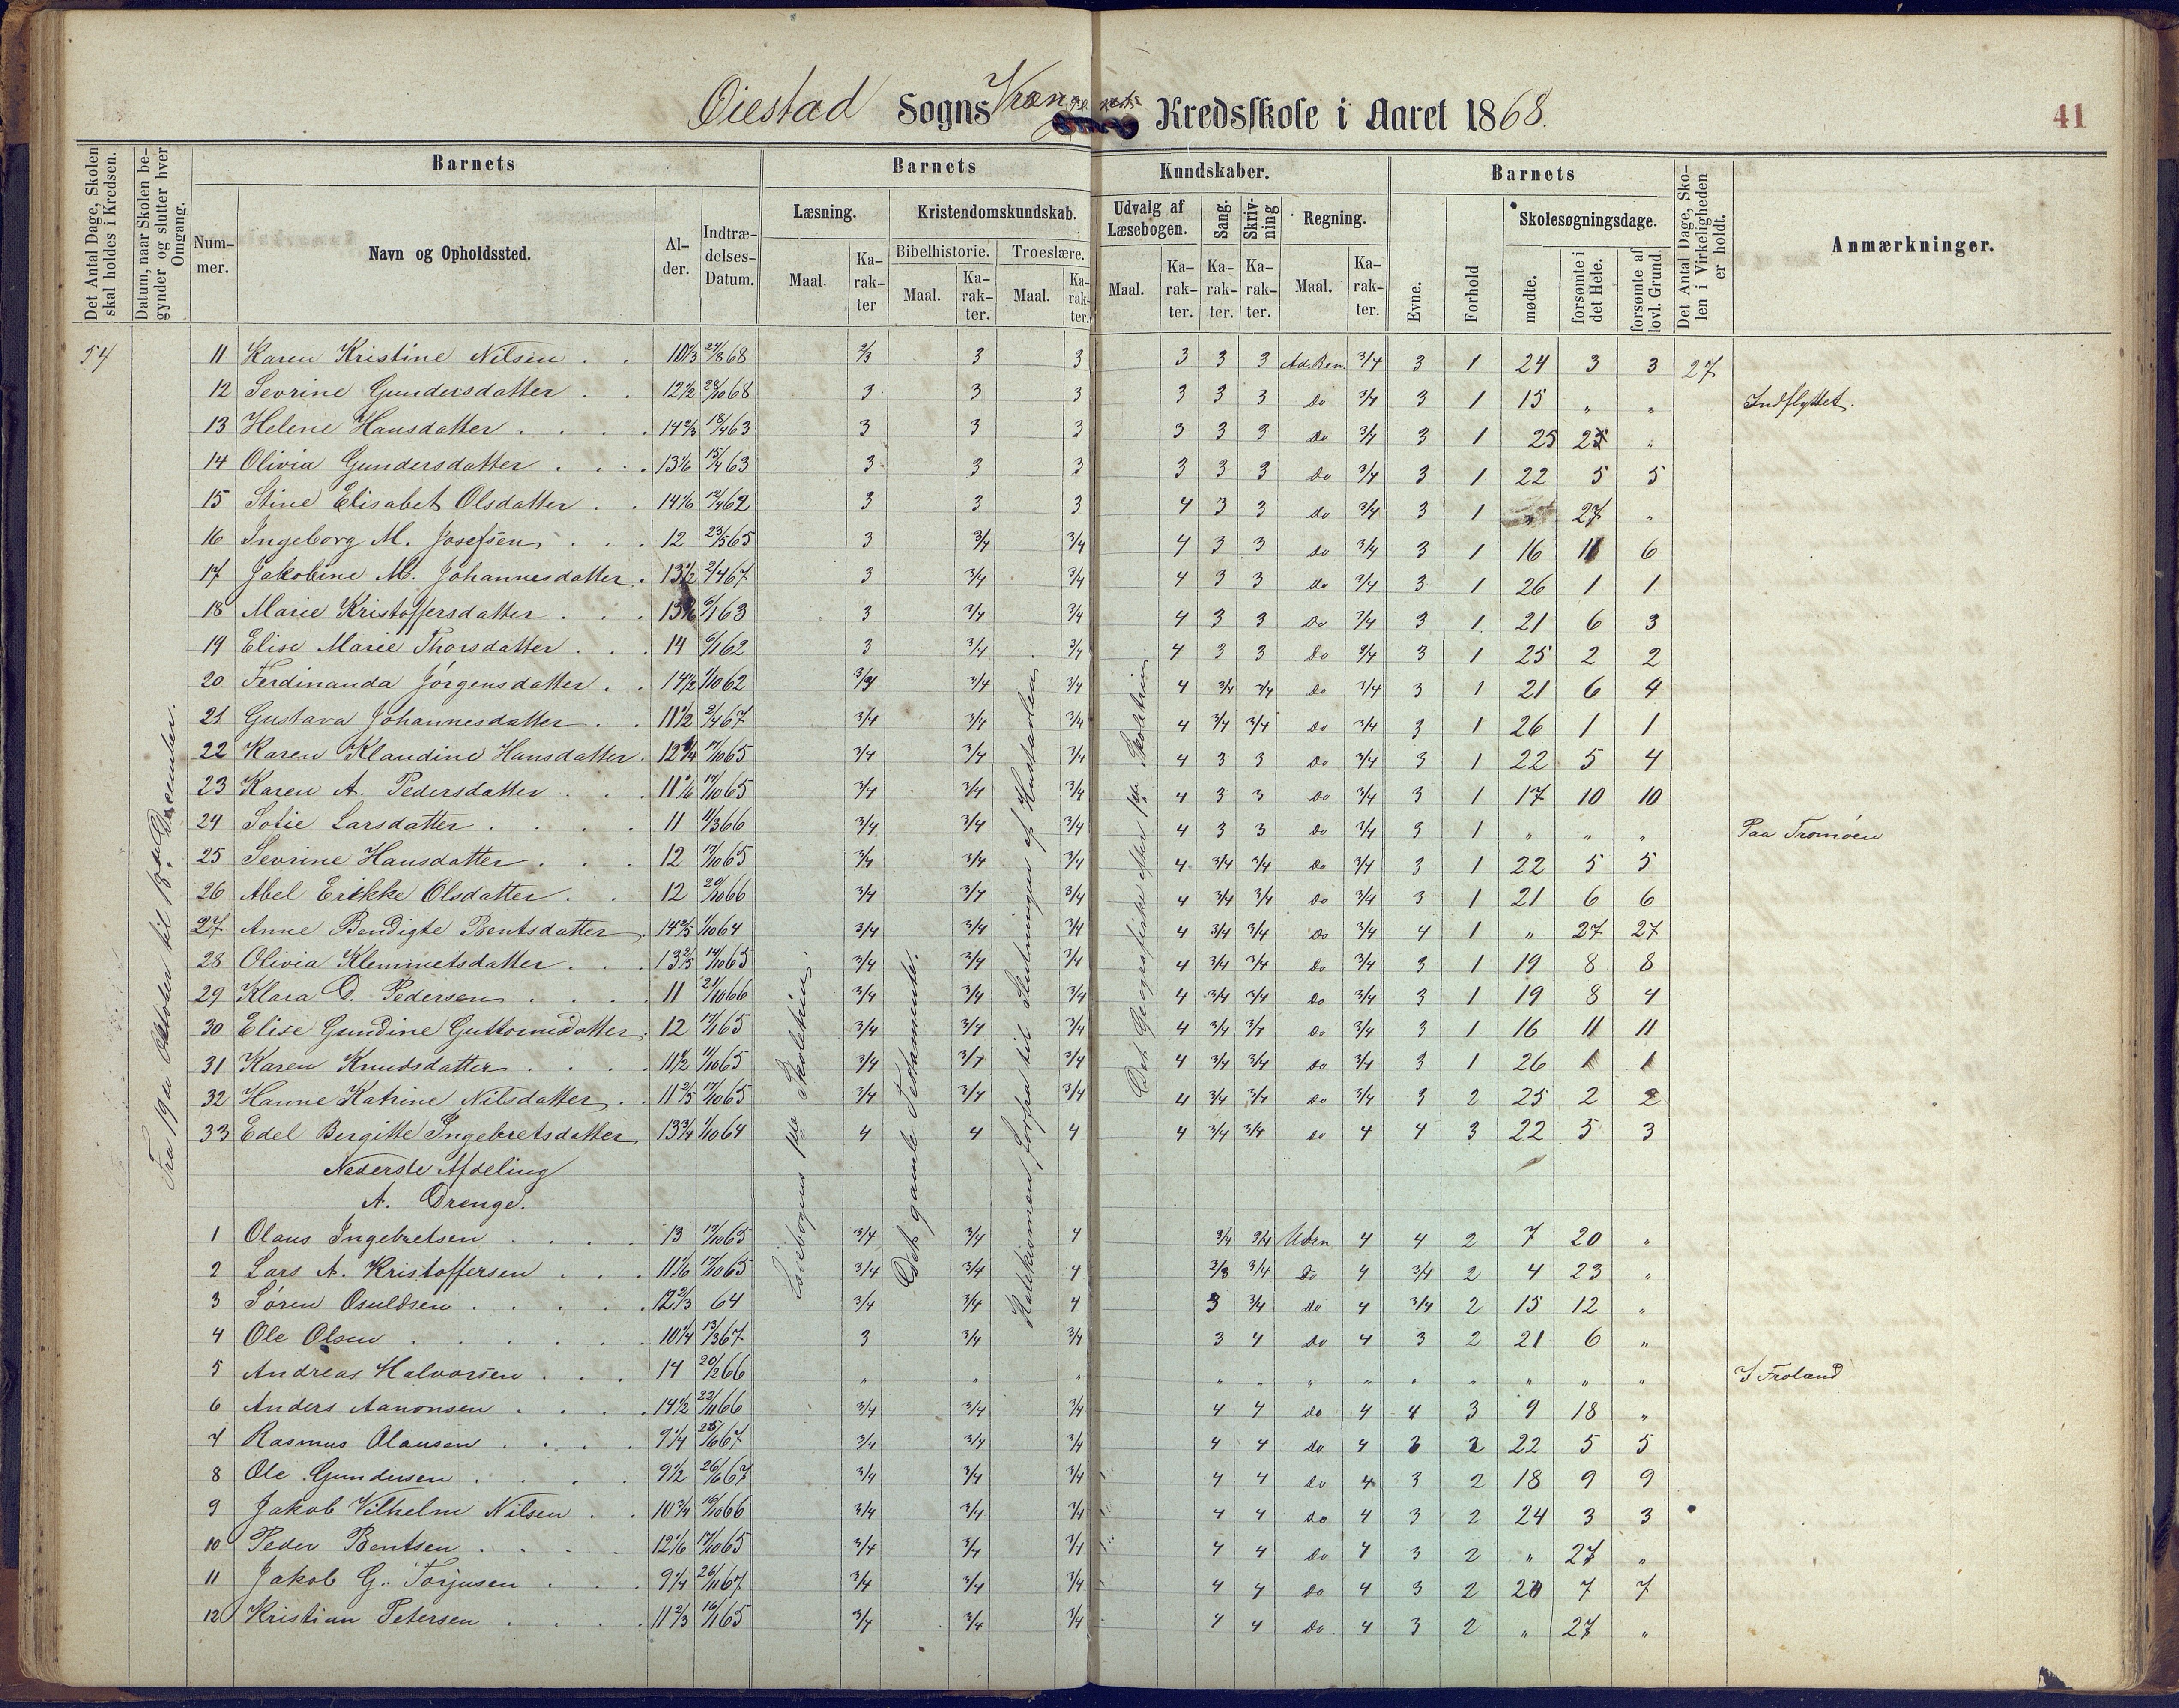 Øiestad Sogns Kredsskole i Aaret 1868.
41
Det Antal Dage, Skolen skal holdes i Kredsen.
Datum, naar Skolen begynder og slutter hver Omgang.
Barnets
Barnets
Kundskaber.
Barnets
Det Antal Dage, Skolen i Virkeligheden er holdt.
Anmærkninger.
Nummer.
Navn og Opholdssted.
Alder.
Indtrædelses-Datum.
Læsning.
Kristendomskundskab.
Udvalg af Læsebogen.
Sang.
Skrivning
Regning.
Evne.
Forhold
Skolesøgningsdage.
Bibelhistorie.
Troeslære.
Maal.
Karakter
Maal.
Karakter.
Maal.
Karakter.
Maal.
Karakter.
Karakter.
Karakter.
Maal.
Karakter.
mødte.
forsømte i det Hele.
forsømte af lovl. Grund.
54
Fra 19de Oktober til 18de December.
Læsebogens 1ste Skoletrin.
Det gamle Testamente.
Katekismen forfra til Slutningen af Hustavlen.
Det Geografiske efter 1ste Skoletrin.
11 Karen Kristine Nilsen 10 1/3 24/8 68 2/3 3 3 3 3 3 Ad. Ben. 3/4 3 1 24 3 3 27
12 Sevrine Gundersdatter 12 1/2 28/10 68 3 3 3 3 3 3 Do 3/4 3 1 15 " " Indflyttet.
13 Helene Hansdatter 14 2/3 18/4 63 3 3 3 3 3 3 Do 3/4 3 1 25 2 "
14 Olivia Gundersdatter 13 1/6 15/4 63 3 3 3 3 3 3 Do 3/4 3 1 22 5 5
15 Stine Elisabet Olsdatter 14 1/6 12/4 62 3 3 3 4 3 3 do 3/4 3 1 " 27 "
16 Ingeborg M. Josefsen 12 23/5 65 3 3/4 3/4 4 3 3 do 3/4 3 1 16 11 6
17 Jakobine M. Johannesdatter 13 1/2 2/4 67 3 3/4 3/4 4 3 3 do 3/4 3 1 26 1 1
18 Marie Kristoffersdatter 6/1 63 3 3/4 3/4 4 3 3 Do 3/4 3 1 21 6 3
19 Elise Marie Thorsdatter 14 6/1 62 3 3/4 3/4 4 3 3 Do 3/4 3 1 25 2 2
20 Ferdinanda Jørgensdatter 14 1/2 1/10 62 3/4 3/4 3/4 4 3/4 3/4 Do 3/4 3 1 21 6 4
21 Gustava Johannesdatter 11 1/2 2/4 67 3/4 3/4 3/4 4 3/4 3/4 Do 3/4 3 1 26 1 1
22 Karen Klaudine Hansdatter 12 3/4 17/10 65 3/4 3/4 3/4 4 3 3 Do 3/4 3 1 22 5 4
23 Karen A. Pedersdatter 11 1/6 17/10 65 3/4 3/4 3/4 4 3 3 Do 3/4 3 1 17 10 10
24 Sofie Larsdatter 11 11/3 66 3/4 3/4 3/4 4 3 3 Do 3/4 3 1 " " " Paa Tromøen
25 Sevrine Hansdatter 12 17/10 65 3/4 3/4 3/4 4 3/4 3/4 Do 3/4 3 1 22 5 5
26 Abel Erikke Olsdatter 12 20/10 66 3/4 3/4 3/4 4 3/4 3/4 Do 3/4 3 1 21 6 6
27 Anne Bendigte Bentsdatter 14 2/5 1/10 64 3/4 3/4 3/4 4 3/4 3/4 Do 3/4 4 1 " 27 27
28 Olivia Klemmetsdatter 13 2/5 14/10 65 3/4 3/4 3/4 4 3/4 3/4 Do 3/4 3 1 19 8 8
29 Klara D. Pedersen 11 21/10 66 3/4 3/4 3/4 4 3/4 3/4 Do 3/4 3 1 19 8 4
30 Elise Gundine Guttormsdatter 12 17/1 65 3/4 3/4 3/4 4 3/4 3/4 Do 3/4 3 1 16 11 11
31 Karen Knudsdatter 11 1/2 11/10 65 3/4 3/4 3/4 4 3/4 3/4 Do 3/4 3 1 26 1 1
32 Hanne Katrine Nilsdatter 11 2/5 17/10 65 3/4 3/4 3/4 4 3/4 3/4 Do 3/4 3 2 25 2 2
33 Edel Bergitte Ingebretsdatter 13 3/4 1/10 64 4 4 4 4 3/4 3/4 do 4 4 3 22 5 3
Nederste Afdeling
A. Drenge.
1 Olaus Ingebretsen 13 17/10 65 3/4 3/4 4 3/4 3/4 Uben 4 4 2 7 20 "
2 Lars A. Kristoffersen 11 1/6 17/10 65 3/4 3/4 4 2/3 3/4 Do 4 3/4 2 4 23 "
3 Søren Osuldsen 12 2/3 64 3/4 3/4 4 3 3/4 do 4 3/4 2 15 12 "
4 Ole Olsen 10 1/4 13/3 67 3 3/4 3/4 3 4 Do 4 3 2 21 6 "
5 Andreas Halvorsen 14 20/2 66 " " " " " " " " " " " " I Froland
6 Anders Aanonsen 14 1/2 22/11 66 3/4 3/4 3/4 4 4 do 4 4 3 9 18 "
7 Rasmus Olausen 9 1/4 25/6 67 3/4 3/4 3/4 4 4 do 4 3 2 22 5 5
8 Ole Gundersen 9 1/2 26/6 67 3/4 3/4 3/4 4 4 do 4 3 2 18 9 9
9 Jakob Vilhelm Nilsen 10 3/4 16/10 66 3/4 3/4 3/4 4 4 do 4 3 2 24 3 3
10 Peder Bentsen 12 1/6 17/10 65 3/4 3/4 3/4 4 4 Do 4 3 2 " 27 "
11 Jakob G. Torjusen 9 1/4 26/11 67 3/4 3/4 3/4 4 4 do 4 3 2 20 7 7
12 Kristian Petersen 11 2/3 16/1 65 3/4 3/4 3/4 4 4 Do 4 3 2 " 27 "